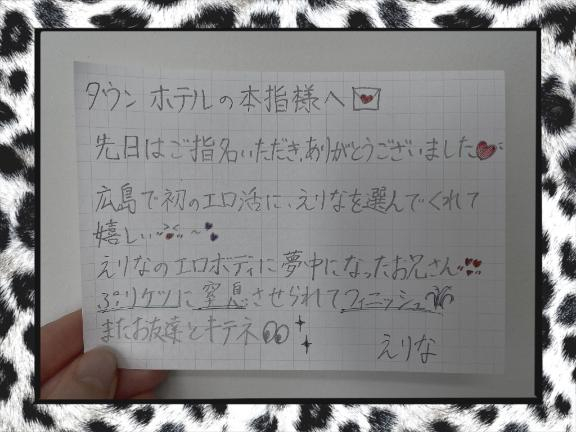 タウンホテルの本指様へ
先日はご指名いただき、ありがとうございました
広島で初のエロ活に、えりなを選んでくれて
嬉しい
えりなのエロボディに夢中になったお兄さん
ぷりケツに窒息させられてフィニッシュ
またお友達とキテネ
えりな